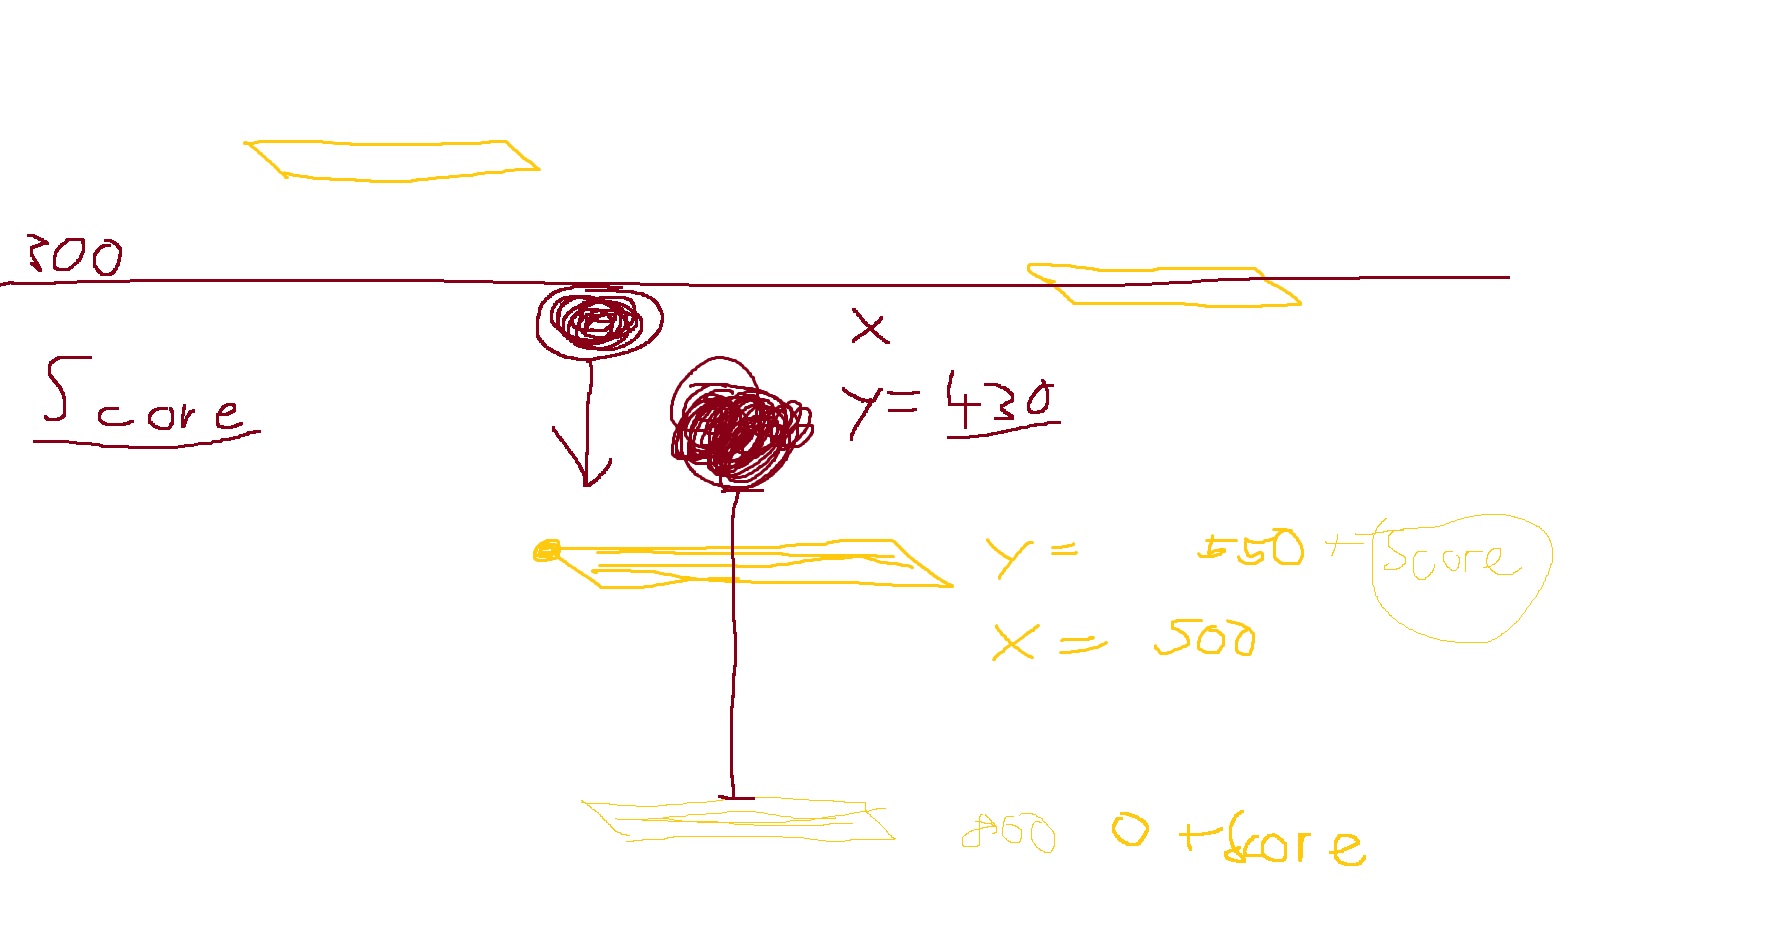 300
Score
X
Y= 430
Y= 550 + Score
X = 500
0 + Score